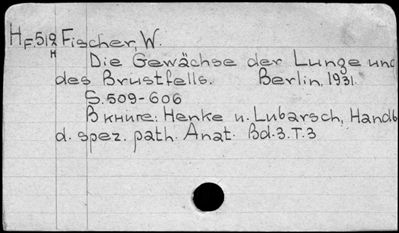 HF519 Fischer, W.
H
Die Gewächse der Lunge und
des Brustfells. Berlin. 1931.
S. 509-606
В книге: Henke u. Lubarsch, Handb
d. spez. path. Anat. Bd. 3. T. 3